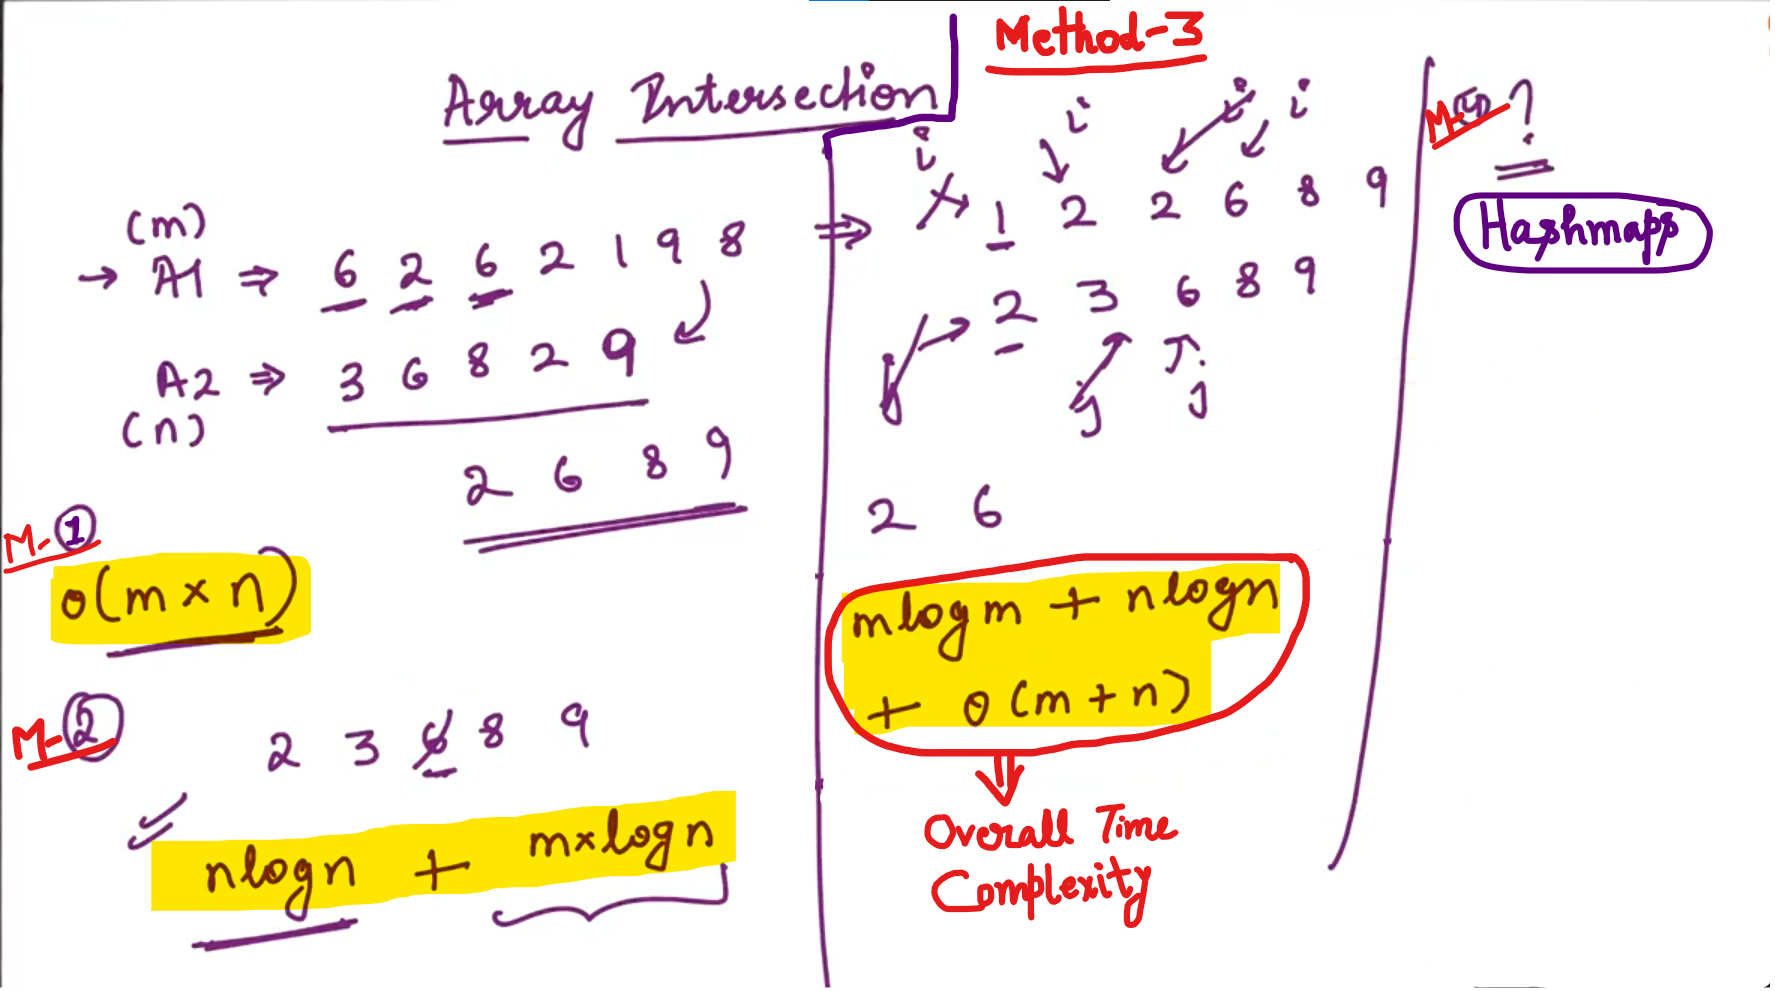 Array Intersection
(m)
→ A1 ⇒ 6 2 6 2 1 9 8
A2 ⇒ 3 6 8 2 9
(n)
2 6 8 9
M-①
O(m × n)
M-②
2 3 6 8 9
nlogn + m×logn
Method-3
i i i i
⇒ 1 2 2 6 8 9
2 3 6 8 9
j j j
2 6
mlogm + nlogn
+ O(m+n)
Overall Time
Complexity
M- ?
Hashmaps